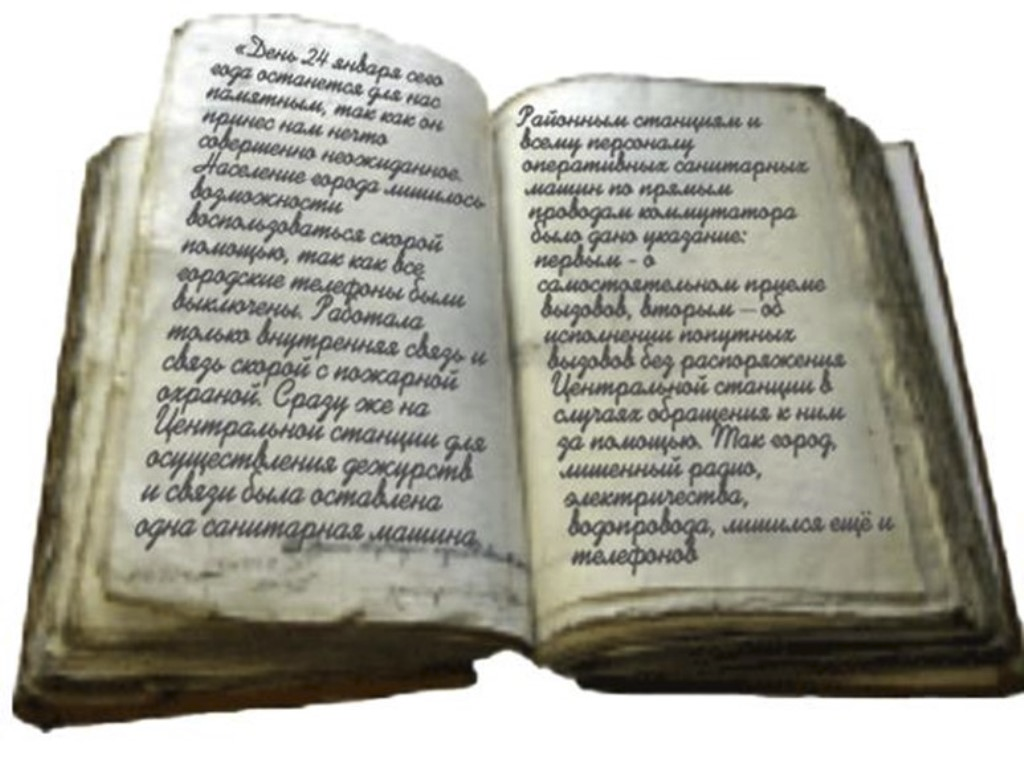 «День 24 января сего
года останется для нас
памятным, так как он
принес нам нечто
совершенно неожиданное.
Население города лишилось
возможности
воспользоваться скорой
помощью, так как все
городские телефоны были
выключены. Работала
только внутренняя связь и
связь скорой с пожарной
охраной. Сразу же на
Центральной станции для
осуществления дежурств
и связи была оставлена
одна санитарная машина
Районным станциям и
всему персоналу
оперативных санитарных
машин по прямым
проводам коммутатора
было дано указание:
первым - о
самостоятельном приеме
вызовов, вторым – об
исполнении попутных
вызовов без распоряжения
Центральной станции в
случаях обращения к ним
за помощью. Так город,
лишенный радио,
электричества,
водопровода, лишился ещё и
телефонов